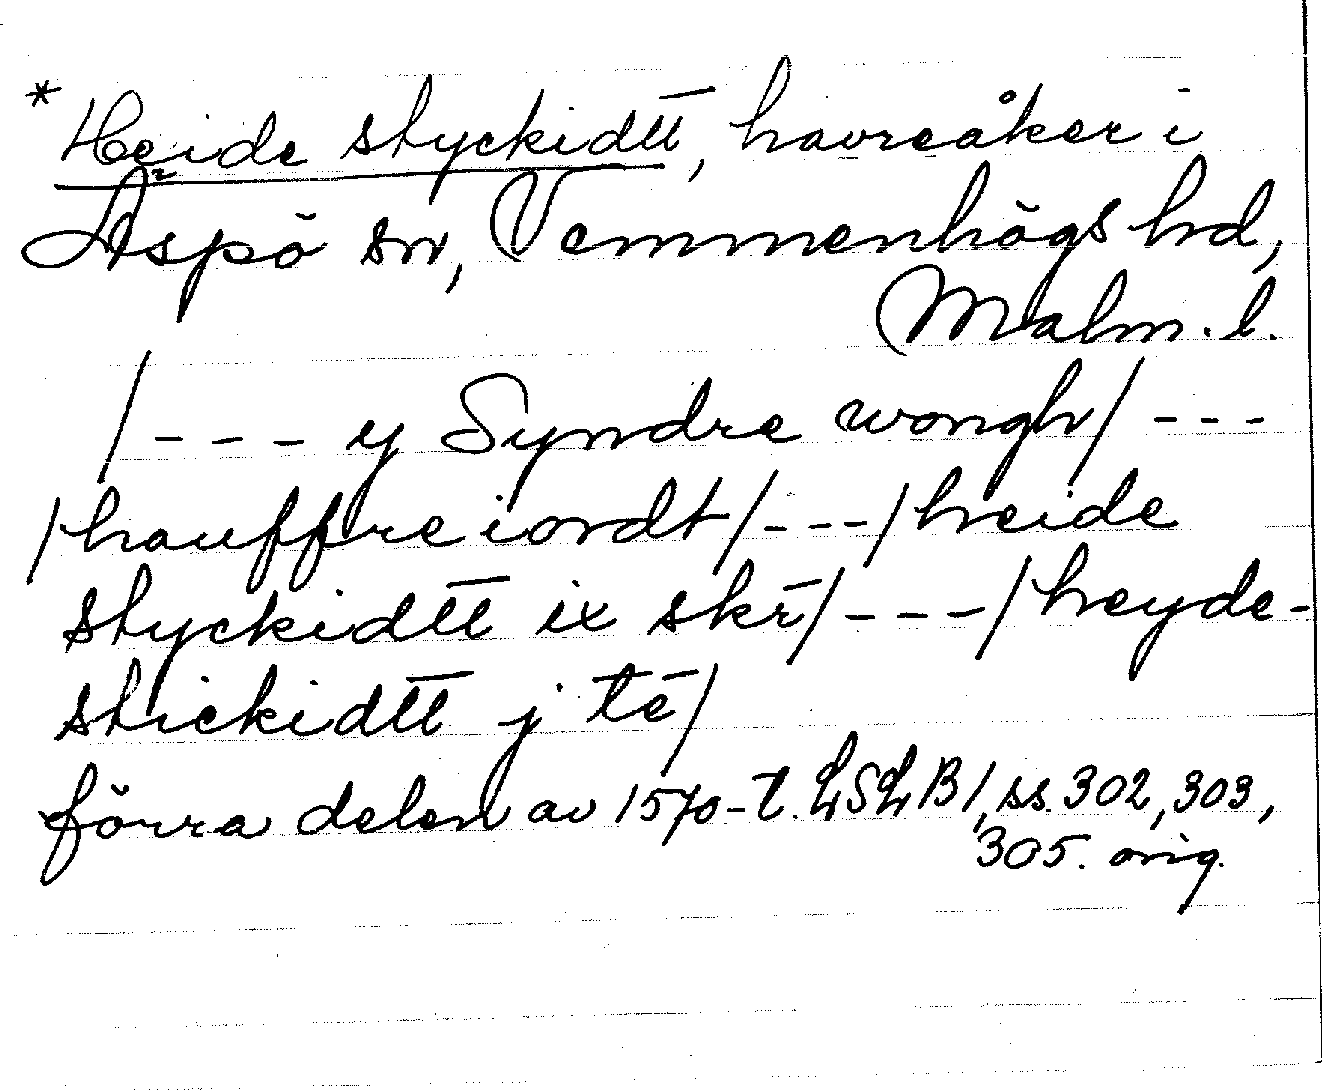 * Heide styckidtt̅, havreåker i
Äspö sn, Vemmenhögs hd,
Malm. l.
/ - - - y Syndre wongh/ - - -
/hauffre iordt/ - - - /heide
styckidtt̅ ix skr̅/ - - - /heyde-
stickidtt̅ j te̅/
förra delen av 1570-t. LSLB 1, ss. 302, 303,
305. orig.